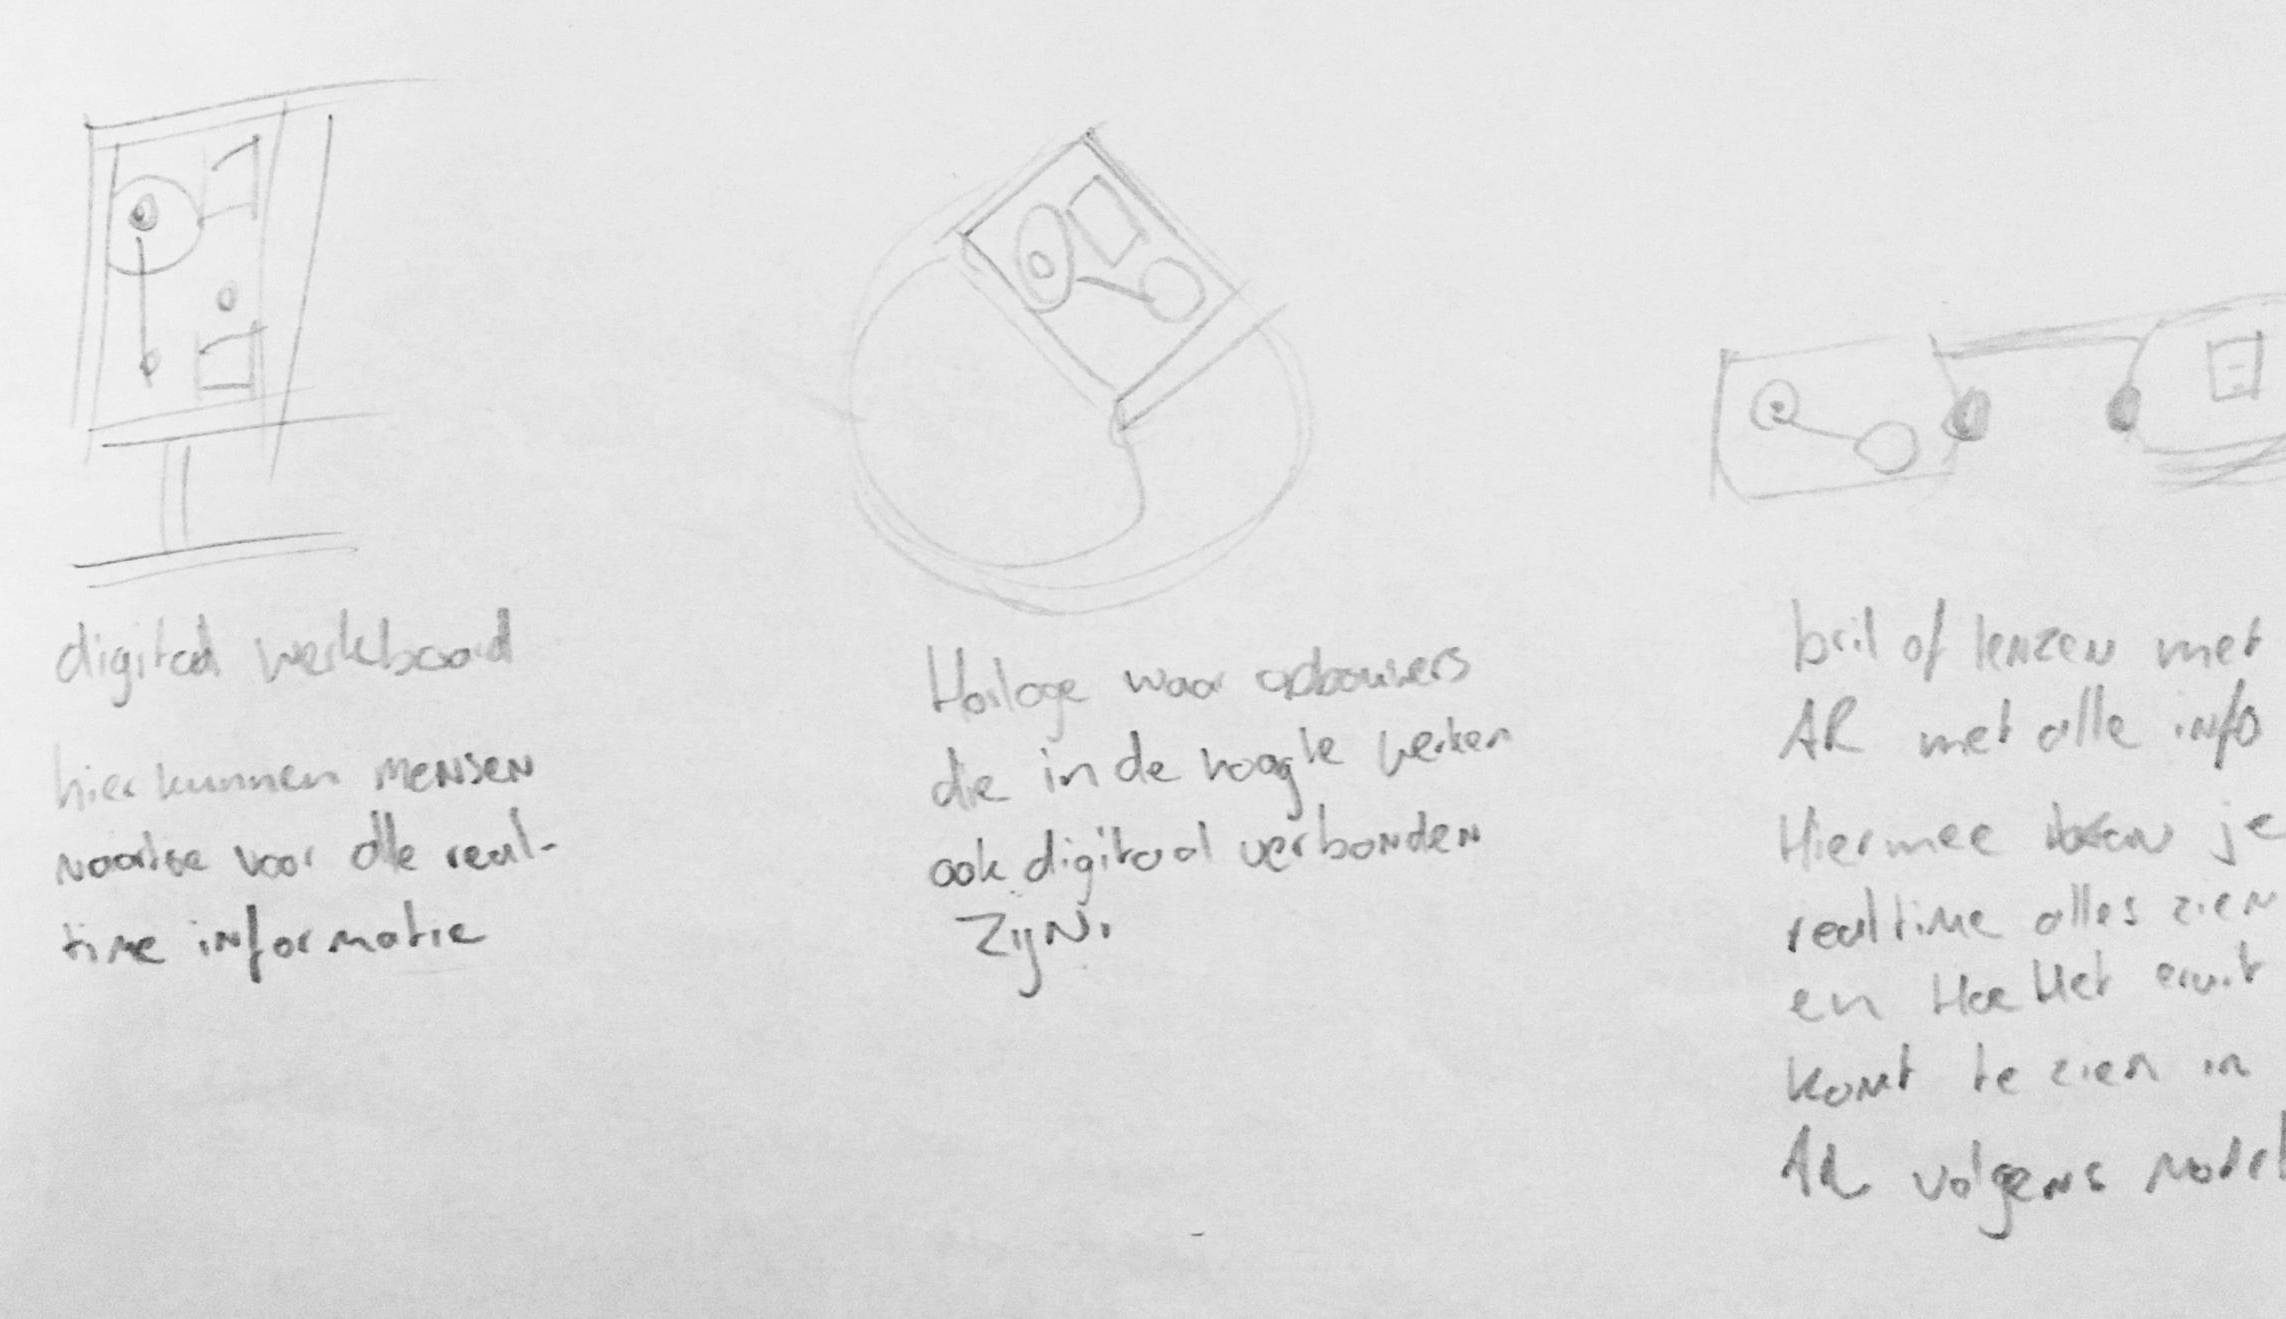 digitaal werkboard
hier kunnen mensen
naartoe voor alle real-
time informatie
Horloge waar opbouwers
die in de hoogte werken
ook digitaal verbonden
zijn.
bril of lenzen met
AR met alle info
Hiermee kan je
realtime alles zien
en Hoe Het eruit
komt te zien in
AR volgens model